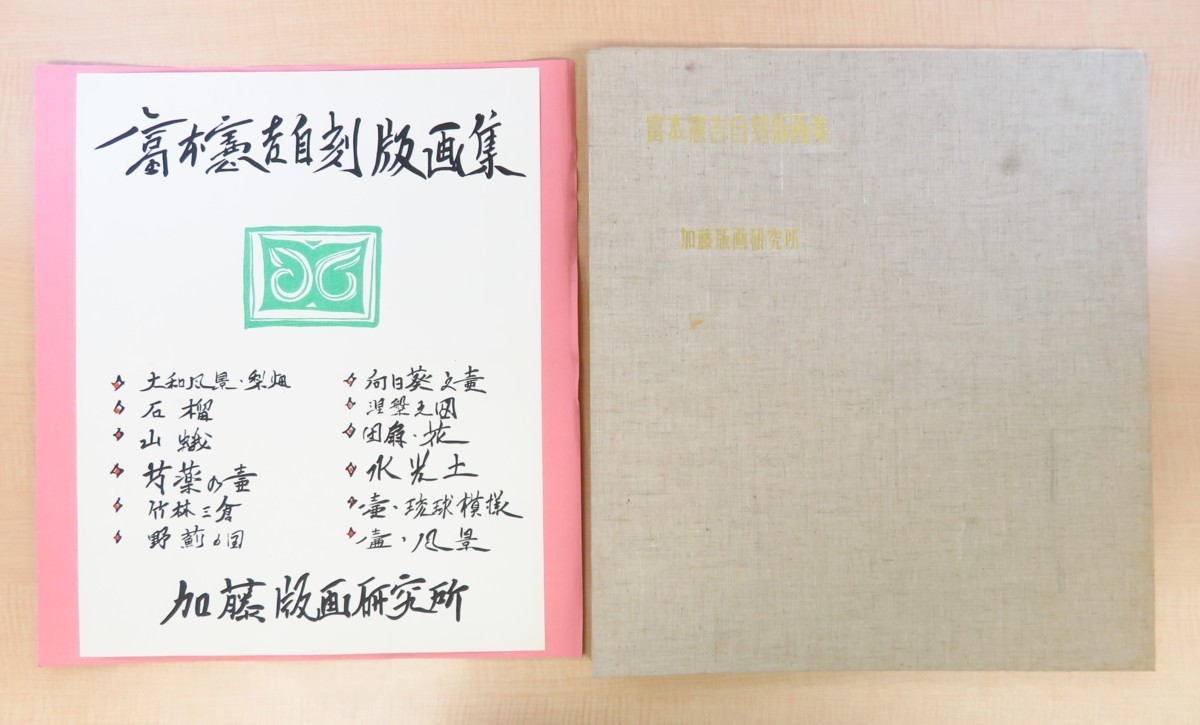 富本憲吉自刻版画集
大和風景・梨畑
石榴
山蛾
芍薬の壷
竹林三倉
野薊の図
向日葵文壷
涅槃之図
田麻・花
水光土
壷・琉球模様
壷・風景
加藤版画研究所
富本憲吉自刻版画集
加藤版画研究所